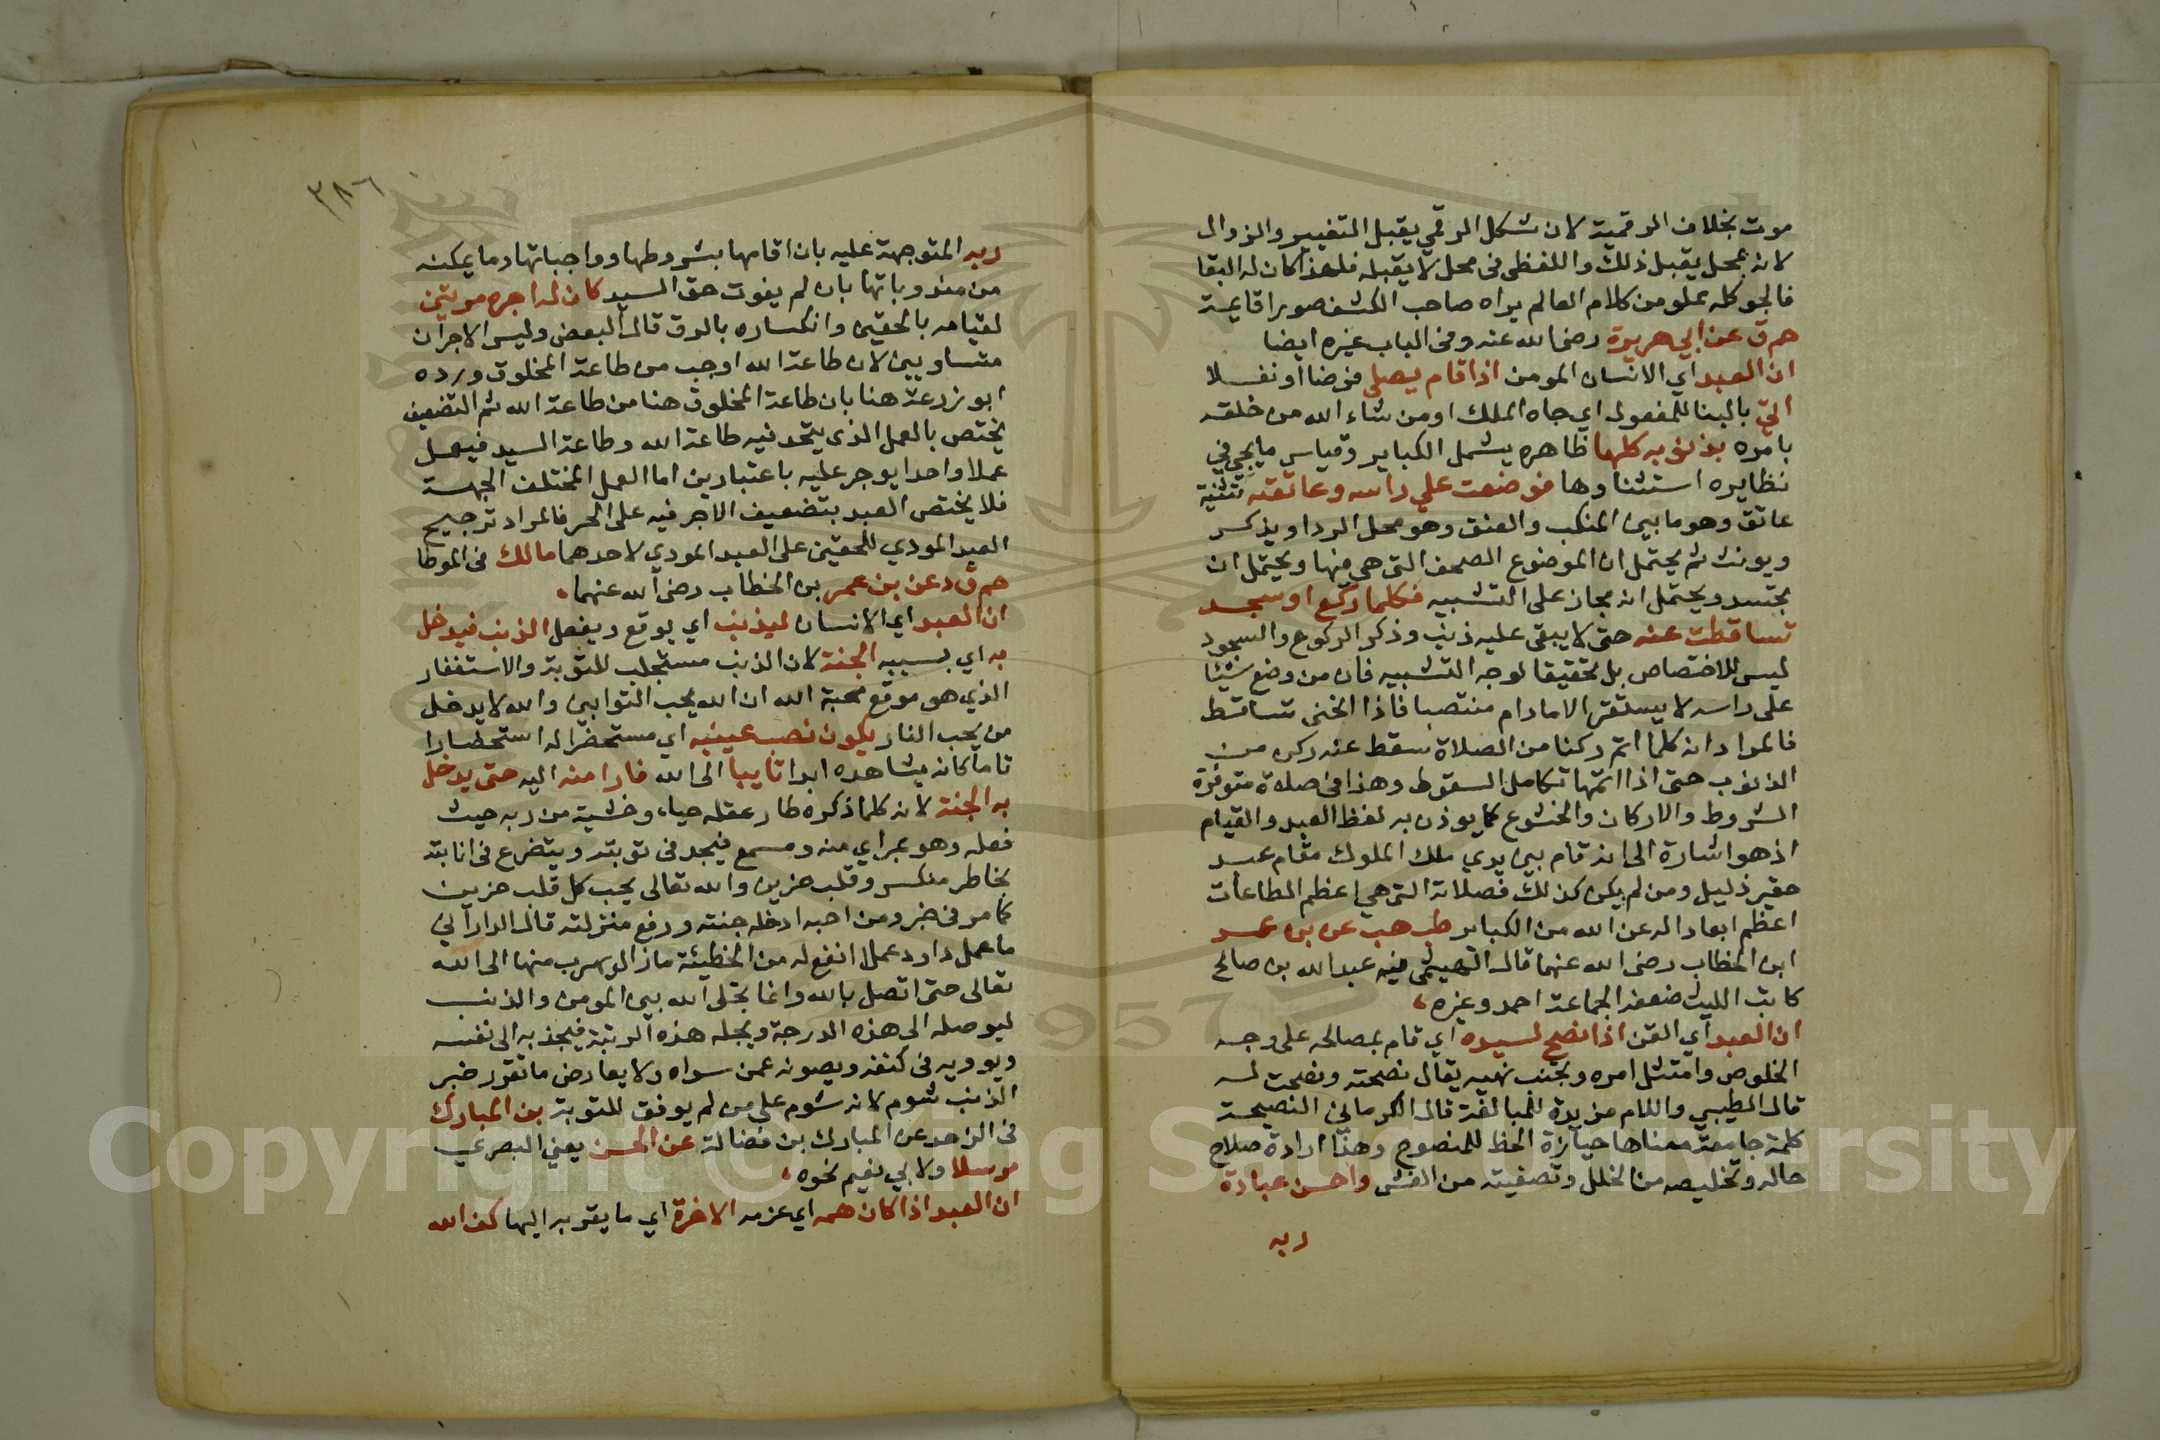 موت بخلاف الرقمية لان شكل الرقمي يقبل التغيير والزوال
لانه بمحل يقبل ذلك واللفظي في محل لا يقبله فلهذا كان له البقا
فالجو كله مملو من كلام العالم يراه صاحب الكشف صورا قايمة
حم ق عن ابي هريرة رضي الله عنه وفي الباب غيره ايضا
ان العبد اي الانسان المومن اذا قام يصلي فرضا او نفلا
اتي بالبنا للمفعول اي جاه الملك او من شاء الله من خلقه
بامره بذنوبه كلها ظاهره يشمل الكباير وقياس ما يجي في
نظايره استثناوها فوضعت علي راسه وعاتقه تثنية
عاتق وهو ما بين المنكب والعنق وهو محل الردا ويذكر
ويونث ثم يحتمل ان الموضوع الصحف التي هي فيها ويحتمل ان
يجسد ويحتمل انه مجاز على التشبيه فكلما ركع او سجد
تساقطت عنه حتى لا يبقى عليه ذنب وذكر الركوع والسجود
ليس للاختصاص بل تحقيقا لوجه التشبيه فان من وضع شيئا
على راسه لا يستقر الا مادام منتصبا فاذا انحنى تساقط
فالمراد انه كلما اتم ركنا من الصلاة سقط عنه ركن من
الذنوب حتى اذا اتمها تكامل السقوط وهذا في صلاة متوفرة
الشروط والاركان والخشوع كما يوذن به لفظ العبد والقيام
اذ هو اشارة الى انه قام بين يدي ملك الملوك مقام عبد
حقير ذليل ومن لم يكن كذلك فصلاته التي هي اعظم الطاعات
اعظم ابعادا له عن الله من الكباير طب حب عن بن عمر
ابن الخطاب رضي الله عنهما قال الهيثمي فيه عبد الله بن صالح
كاتب الليث ضعفه الجماعة احمد وغيره
ان العبد اي القن اذا نصح لسيده اي قام بمصالحه على وجه
الخلوص وامتثل امره وتجنب نهيه يقال نصحته ونصحت له
قال الطيبي واللام مزيدة للمبالغة قال الكرماني النصيحة
كلمة جامعة معناها حيازة الحظ للمنصوح وهذا ارادة صلاح
حاله وتخليصه من الخلل وتصفيته من الغش واحسن عبادة
ربه
٣٨٦
ربه المتوجهة عليه بان اقامها بشروطها وواجباتها وما يمكنه
من مندوباتها بان لم يفوت حق السيد كان له اجره مرتين
لقيامه بالحقين وانكساره بالرق قال البعض وليس الاجران
متساويين لان طاعة الله اوجب من طاعة المخلوق ورده
ابو زرعة هنا بان طاعة المخلوق هنا من طاعة الله ثم التضعيف
يختص بالعمل الذي يتحد فيه طاعة الله وطاعة السيد فيعمل
عملا واحدا يوجر عليه باعتبارين اما العمل المختلف الجهة
فلا يختص العبد بتضعيف الاجر فيه على الحر فالمراد ترجيح
العبد المودي للحقين على العبد المودي لاحدهما مالك في الموطا
حم ق د عن بن عمر بن الخطاب رضي الله عنهما
ان العبد اي الانسان ليذنب اي يوقع ويفعل الذنب فيدخل
به اي بسببه الجنة لان الذنب مستجلب للتوبة والاستغفار
الذي هو موقع محبة الله ان الله يحب التوابين والله لا يدخل
من يحب النار يكون نصب عينيه اي مستحضرا له استحضارا
تاما كانه يشاهده ابدا تايبا الى الله فارا منه اليه حتى يدخل
به الجنة لانه كلما ذكره طار عقله حياء وخشية من ربه حيث
فعله وهو بمراي منه ومسمع فيجد في توبته ويتضرع في انابته
بخاطر منكسر وقلب حزين والله تعالى يحب كل قلب حزين
كما مر في خبر ومن احبه ادخله جنته ورفع منزلته قال الداراني
ما عمل داود عملا انفع له من الخطيئة ما زال يهرب منها الى الله
تعالى حتى اتصل بالله وانما يخلي الله بين المومن والذنب
ليوصله الى هذه الدرجة ويحله هذه الرتبة فيجذبه الى نفسه
ويوويه في كنفه ويصونه عمن سواه ولا يعارض ما تقرر خبر
الذنب شوم لانه شوم على من لم يوفق للتوبة بن المبارك
في الزهد عن المبارك بن فضالة عن الحسن يعني البصري
مرسلا ولابي نعيم نحوه
ان العبد اذا كان همه اي عزمه الاخرة اي ما يقربه اليها كف الله
Copyright © King Saud University
1957